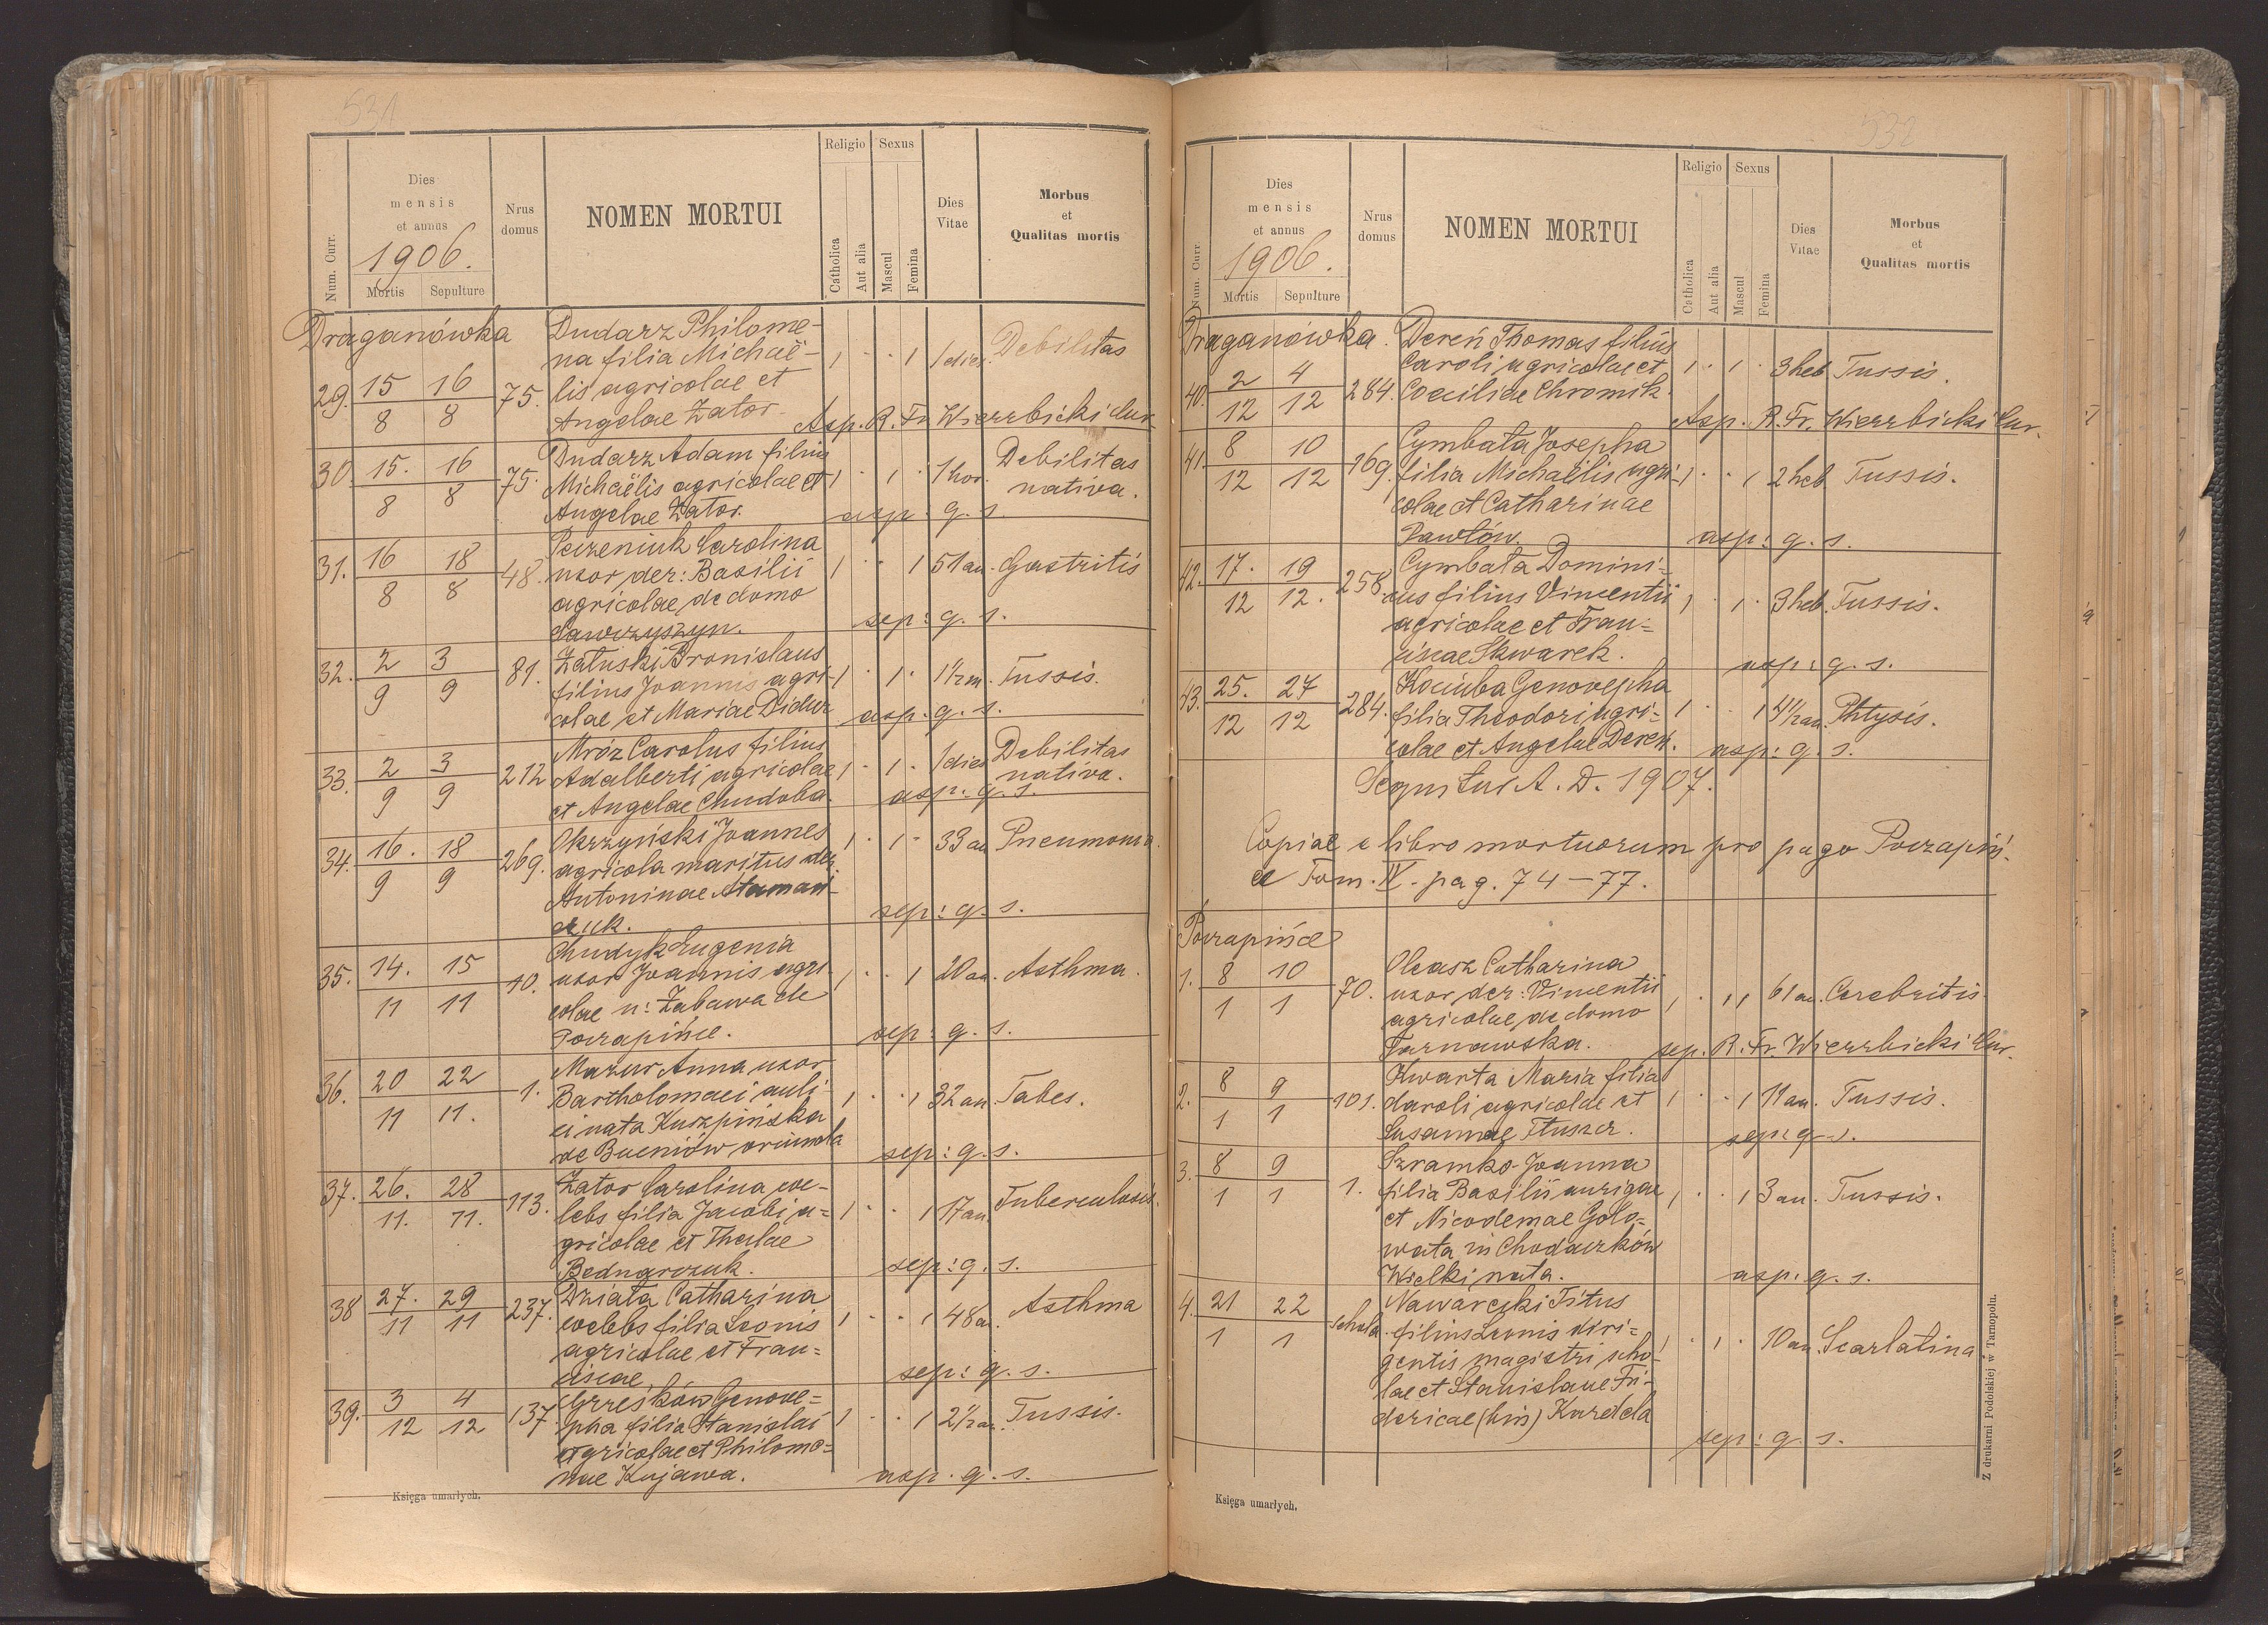 531
Num. Curr.
Dies
mensis
et annus
1906.
Mortis Sepulture
Nrus
domus
NOMEN MORTUI
Religio
Catholica
Aut alia
Sexus
Mascul
Femina
Dies
Vitae
Morbus
et
Qualitas mortis
Draganówka
29. 15/8 16/8 75. Dudarz Philome-
na filia Michaë-
lis agricolae et
Angelae Zator. 1 · · 1 1 dies Debilitas
Asp. R. Fr. Wierzbicki Cur.
30. 15./8 16/8 75. Dudarz Adam filius
Michaëlis agricolae et
Angelae Zator. 1 · 1 · 1 hor. Debilitas
nativa.
asp. q. s.
31. 16/8 18/8 48. Peczeniuk Carolina
uxor der: Basilii
agricolae, de domo
Sawczyszyn. 1 · · 1 51 an. Gastritis
sep: q. s.
32. 2/9 3/9 81. Załuski Bronislaus
filius Joannis agri-
colae et Mariae Didur 1 · 1 · 1 1/2 m. Tussis.
asp. q. s.
33. 2/9 3/9 212 Mróz Carolus filius
Adalberti agricolae
et Angelae Chudoba. 1 · 1 · 1 dies Debilitas
nativa.
asp. q. s.
34. 16./9 18/9 269. Okrzyński Joannes
agricola maritus der.
Antoninae Ataman-
czuk. 1 · 1 - 33 an Pneumonia.
sep: q. s.
35. 14./11 15/11 10. Chudyk Eugenia
uxor Joannis agri-
colae n: Zabawa de
Poczapińce. 1 · · 1 20 an. Asthma.
sep: q. s.
36. 20/11 22/11. 1. Mazur Anna uxor
Bartholomaei auli-
ci nata Kuszpińska
de Bueniów oriunda 1 · · 1 32 an. Tabes.
sep: q. s.
37. 26./11. 28/11. 113. Zator Carolina, coe-
lebs filia Jacobi a=
gricolae et Theclae
Bednarczuk. 1 · · 1 17 an. Tuberculosis.
sep: q. s.
38 27./11 29/11 237. Działa Catharina
coelebs filia Leonis
agricolae et Fran=
ciscae. 1 · · 1 48 a. Asthma
sep: q. s.
39. 3/12 4/12 137. Grześków Genove=
pha filia Stanislai
agricolae et Philome=
nae Kujawa. 1 · · 1 2 1/2 an. Tussis.
asp. q. s.
Księga umarłych.
532
Num. Curr.
Dies
mensis
et annus
1906.
Mortis Sepulture
Nrus
domus
NOMEN MORTUI
Religio
Catholica
Aut alia
Sexus
Mascul
Femina
Dies
Vitae
Morbus
et
Qualitas mortis
Draganówka.
40. 2/12 4/12 284. Dereń Thomas filius
Caroli agricolae et
Coeciliae Chromik. 1 · 1 · 3 heb. Tussis.
Asp. R. Fr. Wierzbicki Cur.
41. 8/12 10/12 169. Cymbała Josepha
filia Michaëlis agri-
colae et Catharinae
Pawłów. 1 · · 1 2 heb. Tussis.
asp: q. s.
42. 17./12 19/12. 258. Cymbała Domini=
cus filius Vincentii
agricolae et Fran=
ciscae Skwarek. 1 · 1 · 3 heb. Tussis.
asp: q. s.
43. 25./12 27/12 284. Kociuba Genovepha
filia Theodori agri=
colae et Angelae Dereń. 1 · · 1 4 1/2 an. Phtysis.
asp: q. s.
Sequitur A. D. 1907.
Copiae e libro mortuorum pro pago Poczapiń.
ce Tom. IV. pag. 74 - 77.
Poczapińce
1. 8/1 10/1 70. Oleasz Catharina
uxor der: Vincentii
agricolae, de domo
Tarnawska. 1 · · 1 61 an. Cerebritis.
sep. R. Fr. Wierzbicki Cur.
2. 8/1 9/1 101. Kwarta Maria filia
Caroli agricolae et
Susannae Tłuszcz. 1 · · 1 11 an. Tussis.
sep: q. s.
3. 8/1 9/1 1. Szramko Joanna
filia Basilii aurigae
et Nicodemae Goło=
wata in Chodaczków
Wielki nata. 1 · · 1 3 an. Tussis.
asp. q. s.
4. 21/1 22/1 Schola. Nawarecki Titus
filius Leonis diri=
gentis magistri scho-
lae et Stanislaue Fri-
dericae (bin) Kardela 1 · 1 · 10 an Scarlatina
sep: q. s.
Księga umarłych.
Z drukarni Podolskiej w Tarnopolu.